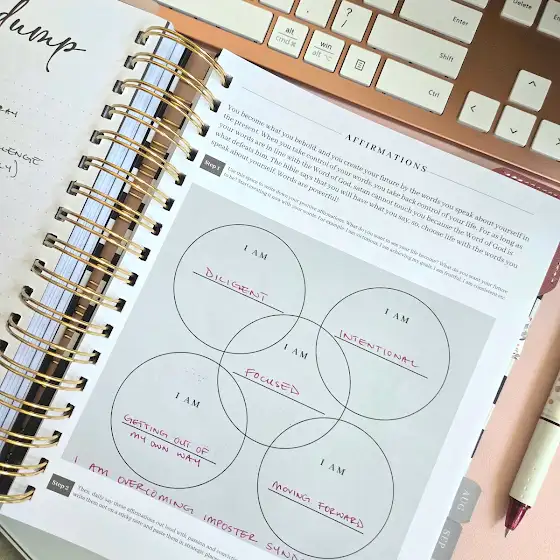 dump
AFFIRMATIONS
You become what you behold, and you create your future by the words you speak about yourself in
the present. When you take control of your words, you take back control of your future. For as long as
your words are in line with the Word of God, satan cannot touch you because the Word of God is
what defeats him. The bible says that you will have what you say, so, choose life with the words you
speak about yourself. Words are powerful!
Step 1
Use this space to write down your positive affirmations. What do you want to see your life become? What do you want your future
I AM
DILIGENT
I AM
INTENTIONAL
I AM
FOCUSED
I AM
GETTING OUT OF
MY OWN WAY
I AM
MOVING FORWARD
I AM OVERCOMING IMPOSTER
Step 2
Then, daily say these affirmations out loud with passion and
write them out on sticky notes and paste them in strategic
AUG
SEP
alt
cmd ⌘
win
alt ⌥
?
/
Enter
Shift
Ctrl
Delete